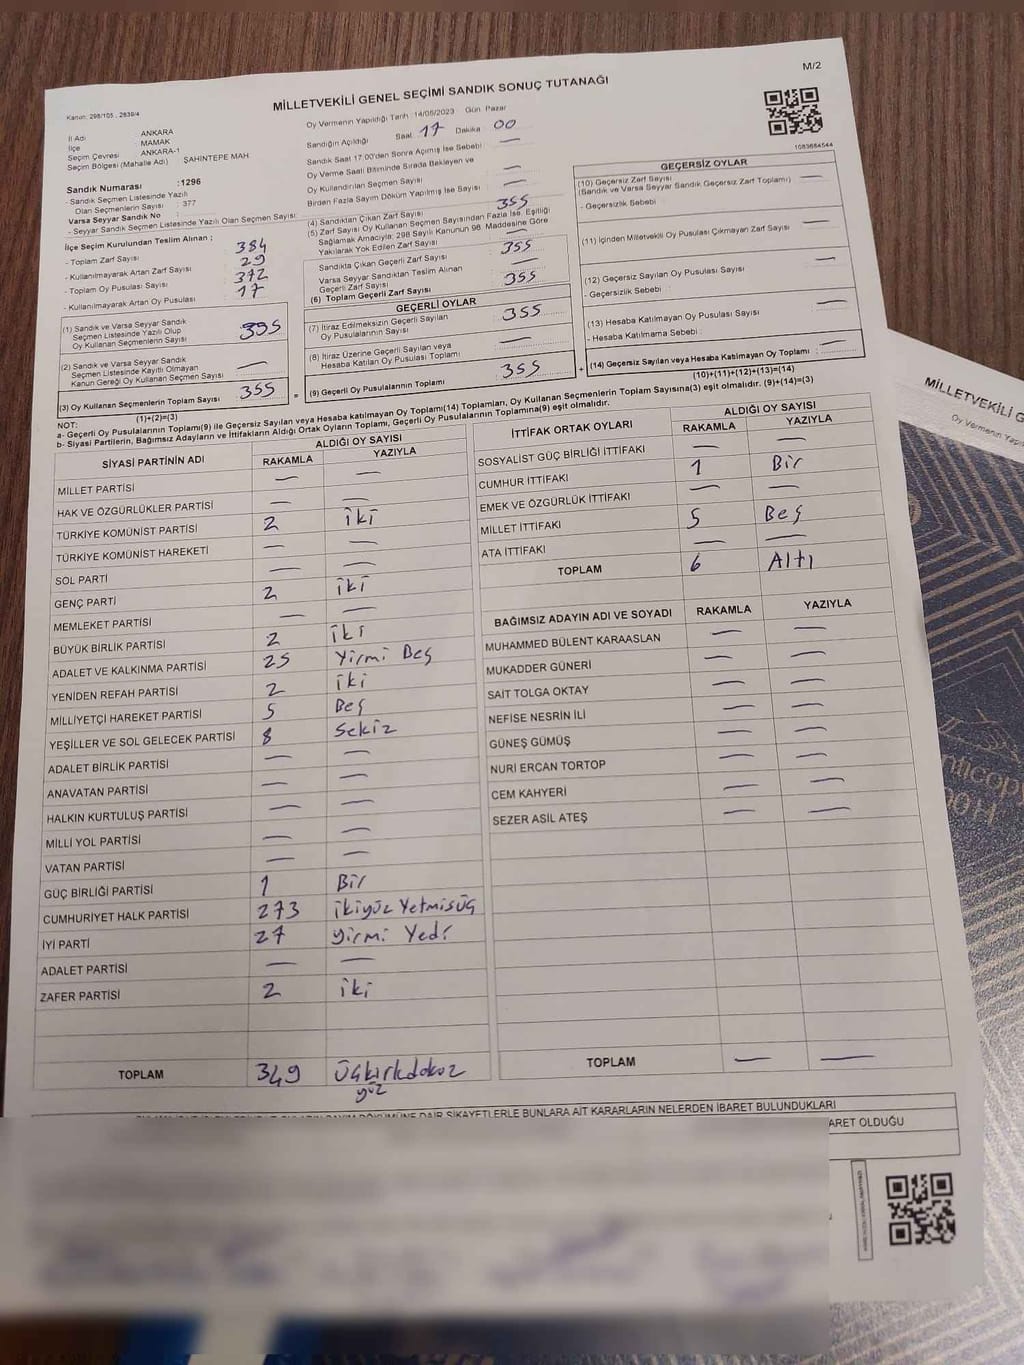 M/2
MİLLETVEKİLİ GENEL SEÇİMİ SANDIK SONUÇ TUTANAĞI
Kanun: 298/105 , 2839/4
Oy Vermenin Yapıldığı Tarih 14/05/2023 Gün Pazar
İl Adı ANKARA
İlçe MAMAK
Seçim Çevresi ANKARA-1
Seçim Bölgesi (Mahalle Adı) ŞAHİNTEPE MAH
Sandık Numarası :1296
- Sandık Seçmen Listesinde Yazılı
Olan Seçmenlerin Sayısı : 377
Varsa Seyyar Sandık No :
- Seyyar Sandık Seçmen Listesinde Yazılı Olan Seçmen Sayısı:
İlçe Seçim Kurulundan Teslim Alınan ;
- Toplam Zarf Sayısı : 384
- Kullanılmayarak Artan Zarf Sayısı : 29
- Toplam Oy Pusulası Sayısı : 372
- Kullanılmayarak Artan Oy Pusulası : 17
(1) Sandık ve Varsa Seyyar Sandık
Seçmen Listesinde Yazılı Olup
Oy Kullanan Seçmenlerin Sayısı : 355
(2) Sandık ve Varsa Seyyar Sandık
Seçmen Listesinde Kayıtlı Olmayan
Kanun Gereği Oy Kullanan Seçmen Sayısı : —
(3) Oy Kullanan Seçmenlerin Toplam Sayısı : 355
(1)+(2)=(3)
Sandığın Açıldığı Saat 17 Dakika 00
Sandık Saat 17:00'den Sonra Açılmış İse Sebebi : —
Oy Verme Saati Bitiminde Sırada Bekleyen ve
Oy Kullandırılan Seçmen Sayısı : —
Birden Fazla Sayım Döküm Yapılmış İse Sayısı : —
(4) Sandıktan Çıkan Zarf Sayısı : 355
(5) Zarf Sayısı Oy Kullanan Seçmen Sayısından Fazla İse, Eşitliği
Sağlamak Amacıyla; 298 Sayılı Kanunun 98. Maddesine Göre
Yakılarak Yok Edilen Zarf Sayısı : —
Sandıkta Çıkan Geçerli Zarf Sayısı : 355
Varsa Seyyar Sandıktan Teslim Alınan
Geçerli Zarf Sayısı : —
(6) Toplam Geçerli Zarf Sayısı : 355
GEÇERLİ OYLAR
(7) İtiraz Edilmeksizin Geçerli Sayılan
Oy Pusulalarının Sayısı : 355
(8) İtiraz Üzerine Geçerli Sayılan veya
Hesaba Katılan Oy Pusulası Toplamı : —
(9) Geçerli Oy Pusulalarının Toplamı : 355
1083684544
GEÇERSİZ OYLAR
(10) Geçersiz Zarf Sayısı : —
(Sandık ve Varsa Seyyar Sandık Geçersiz Zarf Toplamı)
- Geçersizlik Sebebi :
(11) İçinden Milletvekili Oy Pusulası Çıkmayan Zarf Sayısı : —
(12) Geçersiz Sayılan Oy Pusulası Sayısı : —
- Geçersizlik Sebebi :
(13) Hesaba Katılmayan Oy Pusulası Sayısı : —
- Hesaba Katılmama Sebebi :
(14) Geçersiz Sayılan veya Hesaba Katılmayan Oy Toplamı : —
(10)+(11)+(12)+(13)=(14)
NOT:
a- Geçerli Oy Pusulalarının Toplamı(9) ile Geçersiz Sayılan veya Hesaba katılmayan Oy Toplamı(14) Toplamları, Oy Kullanan Seçmenlerin Toplam Sayısına(3) eşit olmalıdır. (9)+(14)=(3)
b- Siyasi Partilerin, Bağımsız Adayların ve İttifakların Aldığı Ortak Oyların Toplamı, Geçerli Oy Pusulalarının Toplamına(9) eşit olmalıdır.
SİYASİ PARTİNİN ADI ALDIĞI OY SAYISI
RAKAMLA YAZIYLA
MİLLET PARTİSİ — —
HAK VE ÖZGÜRLÜKLER PARTİSİ — —
TÜRKİYE KOMÜNİST PARTİSİ 2 iki
TÜRKİYE KOMÜNİST HAREKETİ — —
SOL PARTİ — —
GENÇ PARTİ 2 iki
MEMLEKET PARTİSİ — —
BÜYÜK BİRLİK PARTİSİ 2 iki
ADALET VE KALKINMA PARTİSİ 25 Yirmi Beş
YENİDEN REFAH PARTİSİ 2 iki
MİLLİYETÇİ HAREKET PARTİSİ 5 Beş
YEŞİLLER VE SOL GELECEK PARTİSİ 8 Sekiz
ADALET BİRLİK PARTİSİ — —
ANAVATAN PARTİSİ — —
HALKIN KURTULUŞ PARTİSİ — —
MİLLİ YOL PARTİSİ — —
VATAN PARTİSİ — —
GÜÇ BİRLİĞİ PARTİSİ 1 Bir
CUMHURİYET HALK PARTİSİ 273 ikiyüz Yetmisüç
İYİ PARTİ 27 yirmi Yedi
ADALET PARTİSİ — —
ZAFER PARTİSİ 2 iki
TOPLAM 349 Üçkırkdokuz
yüz
İTTİFAK ORTAK OYLARI ALDIĞI OY SAYISI
RAKAMLA YAZIYLA
SOSYALİST GÜÇ BİRLİĞİ İTTİFAKI — —
CUMHUR İTTİFAKI 1 Bir
EMEK VE ÖZGÜRLÜK İTTİFAKI — —
MİLLET İTTİFAKI 5 Beş
ATA İTTİFAKI — —
TOPLAM 6 Altı
BAĞIMSIZ ADAYIN ADI VE SOYADI RAKAMLA YAZIYLA
MUHAMMED BÜLENT KARAASLAN — —
MUKADDER GÜNERİ — —
SAİT TOLGA OKTAY — —
NEFİSE NESRİN İLİ — —
GÜNEŞ GÜMÜŞ — —
NURİ ERCAN TORTOP — —
CEM KAHYERİ — —
SEZER ASİL ATEŞ — —
TOPLAM — —
DÖKÜMÜNE DAİR ŞİKAYETLERLE BUNLARA AİT KARARLARIN NELERDEN İBARET BULUNDUKLARI
ARET OLDUĞU
MİLLETVEKİLİ G
Oy Vermenin Yapı